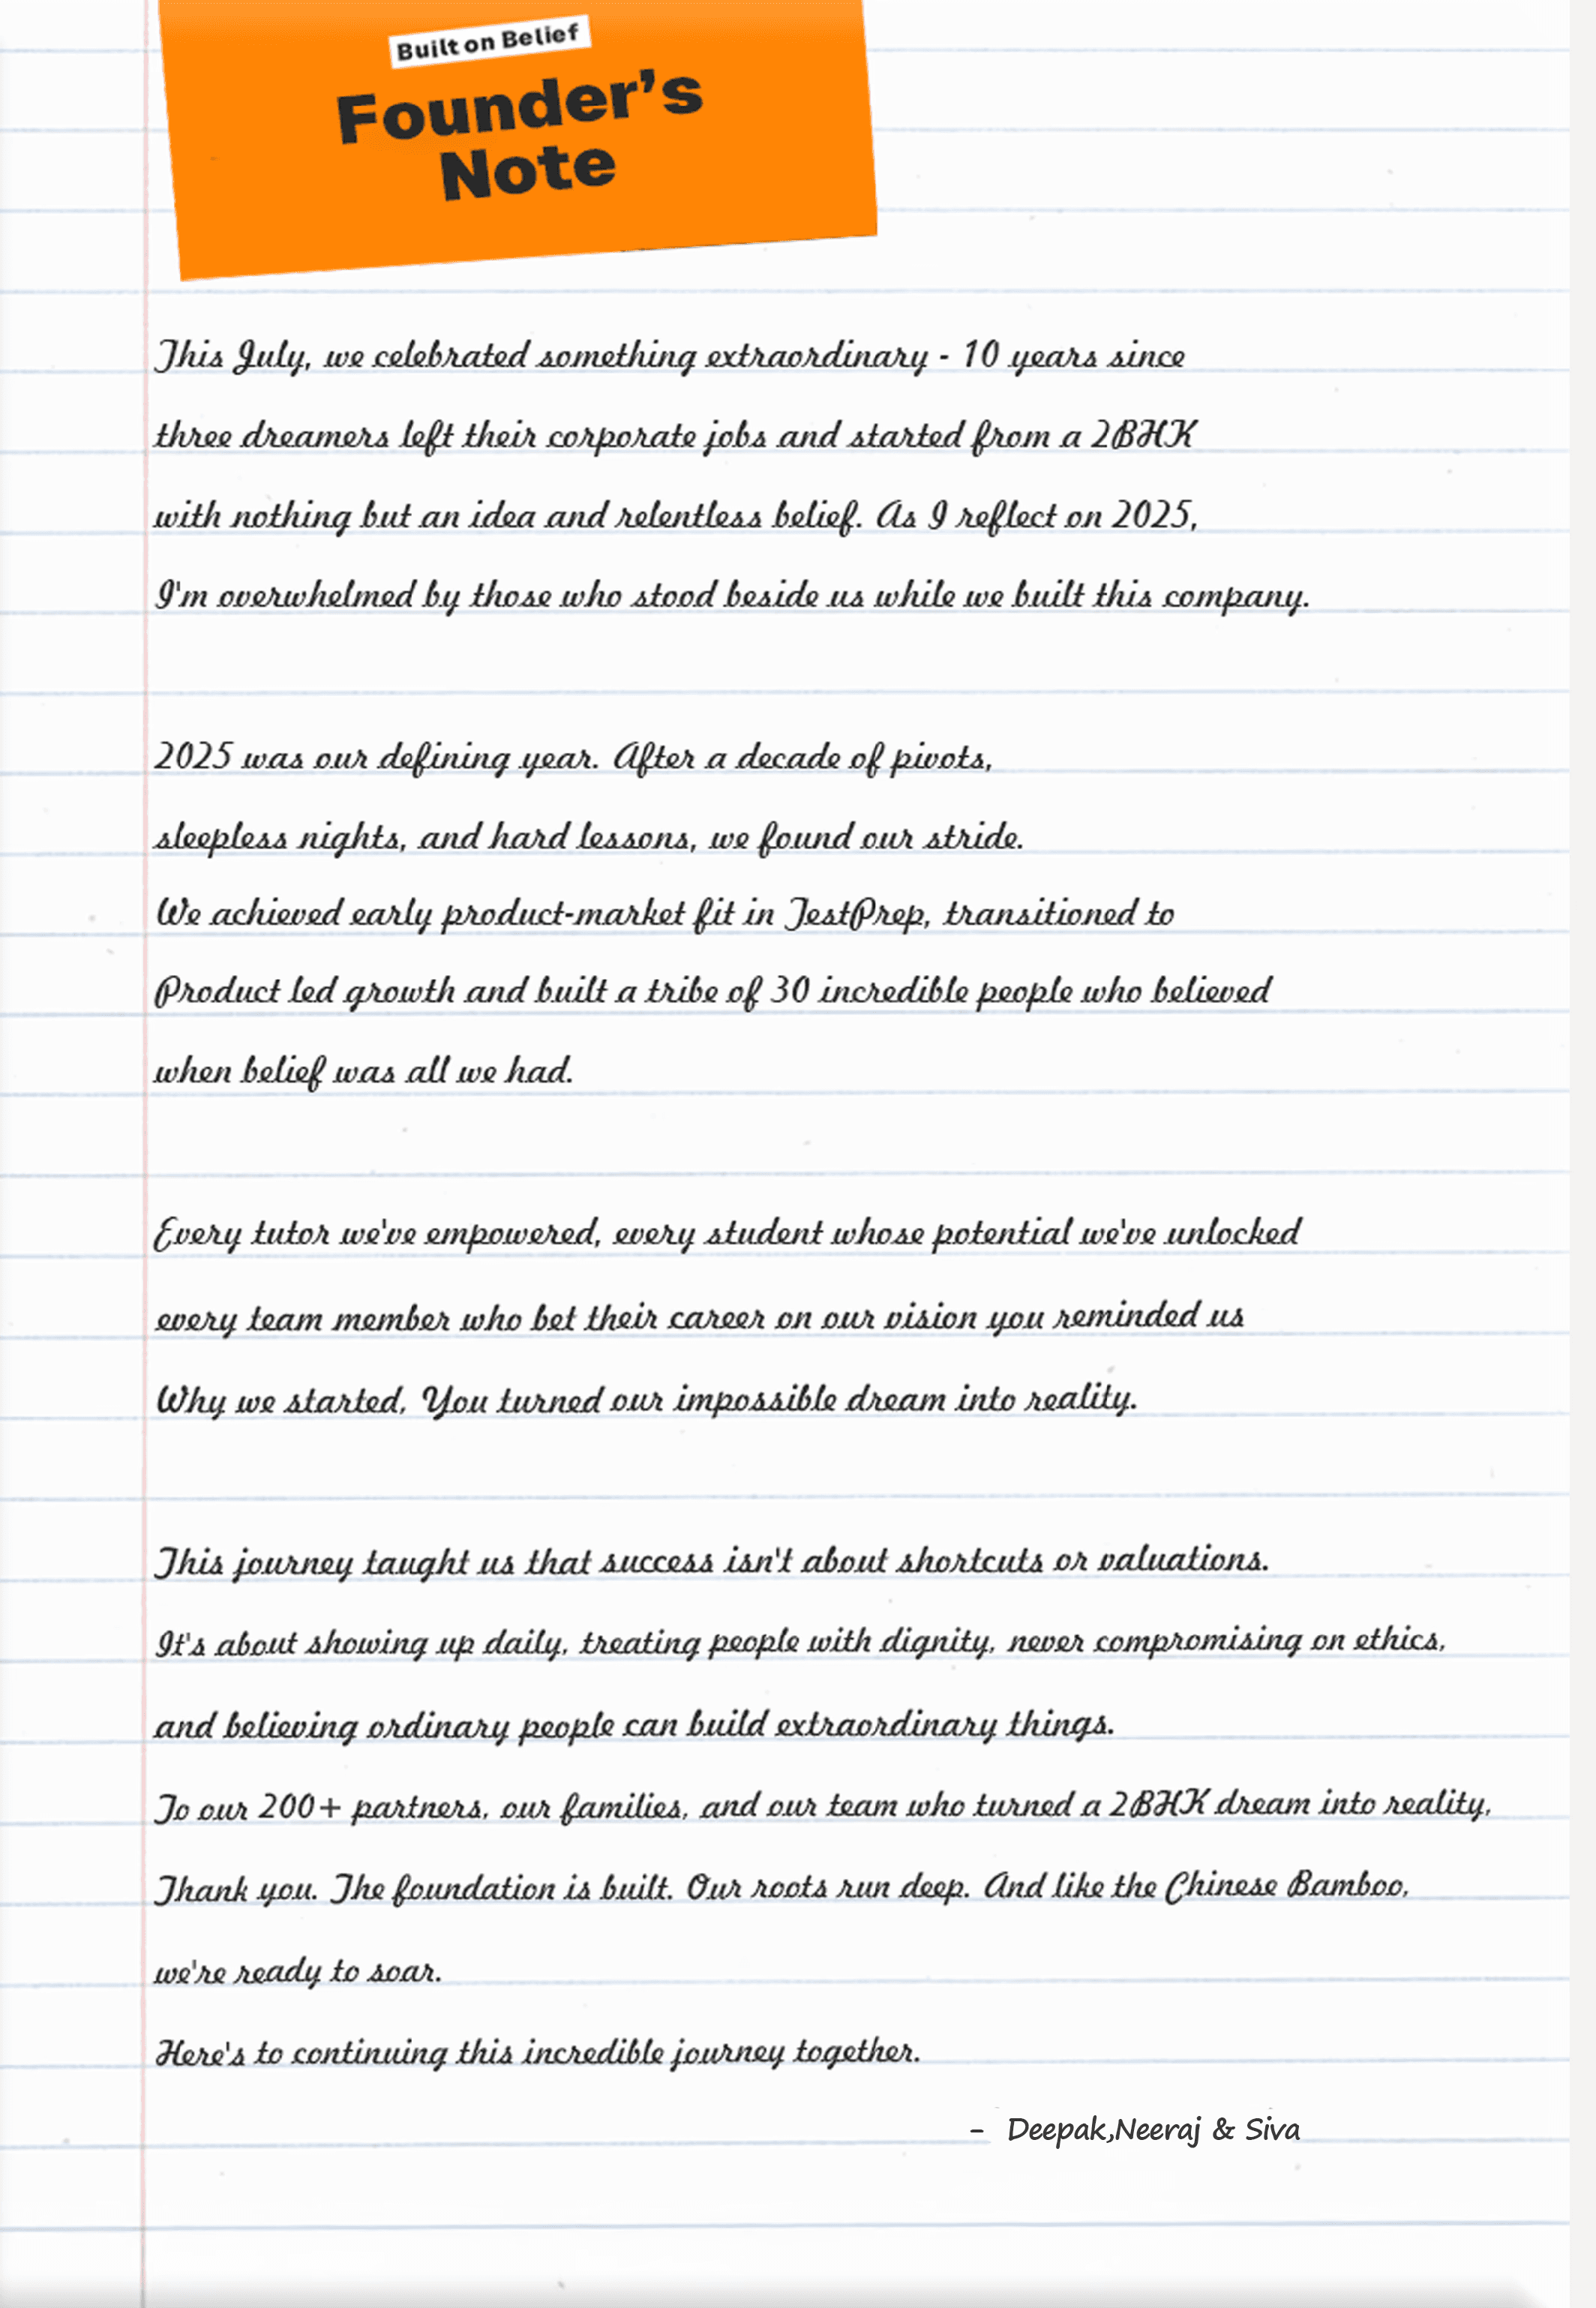 Built on Belief
Founder's
Note
This July, we celebrated something extraordinary - 10 years since
three dreamers left their corporate jobs and started from a 2BHK
with nothing but an idea and relentless belief. As I reflect on 2025,
I'm overwhelmed by those who stood beside us while we built this company.
2025 was our defining year. After a decade of pivots,
sleepless nights, and hard lessons, we found our stride.
We achieved early product-market fit in TestPrep, transitioned to
Product led growth and built a tribe of 30 incredible people who believed
when belief was all we had.
Every tutor we've empowered, every student whose potential we've unlocked
every team member who bet their career on our vision you reminded us
Why we started, You turned our impossible dream into reality.
This journey taught us that success isn't about shortcuts or valuations.
It's about showing up daily, treating people with dignity, never compromising on ethics,
and believing ordinary people can build extraordinary things.
To our 200+ partners, our families, and our team who turned a 2BHK dream into reality,
Thank you. The foundation is built. Our roots run deep. And like the Chinese Bamboo,
we're ready to soar.
Here's to continuing this incredible journey together.
- Deepak,Neeraj & Siva